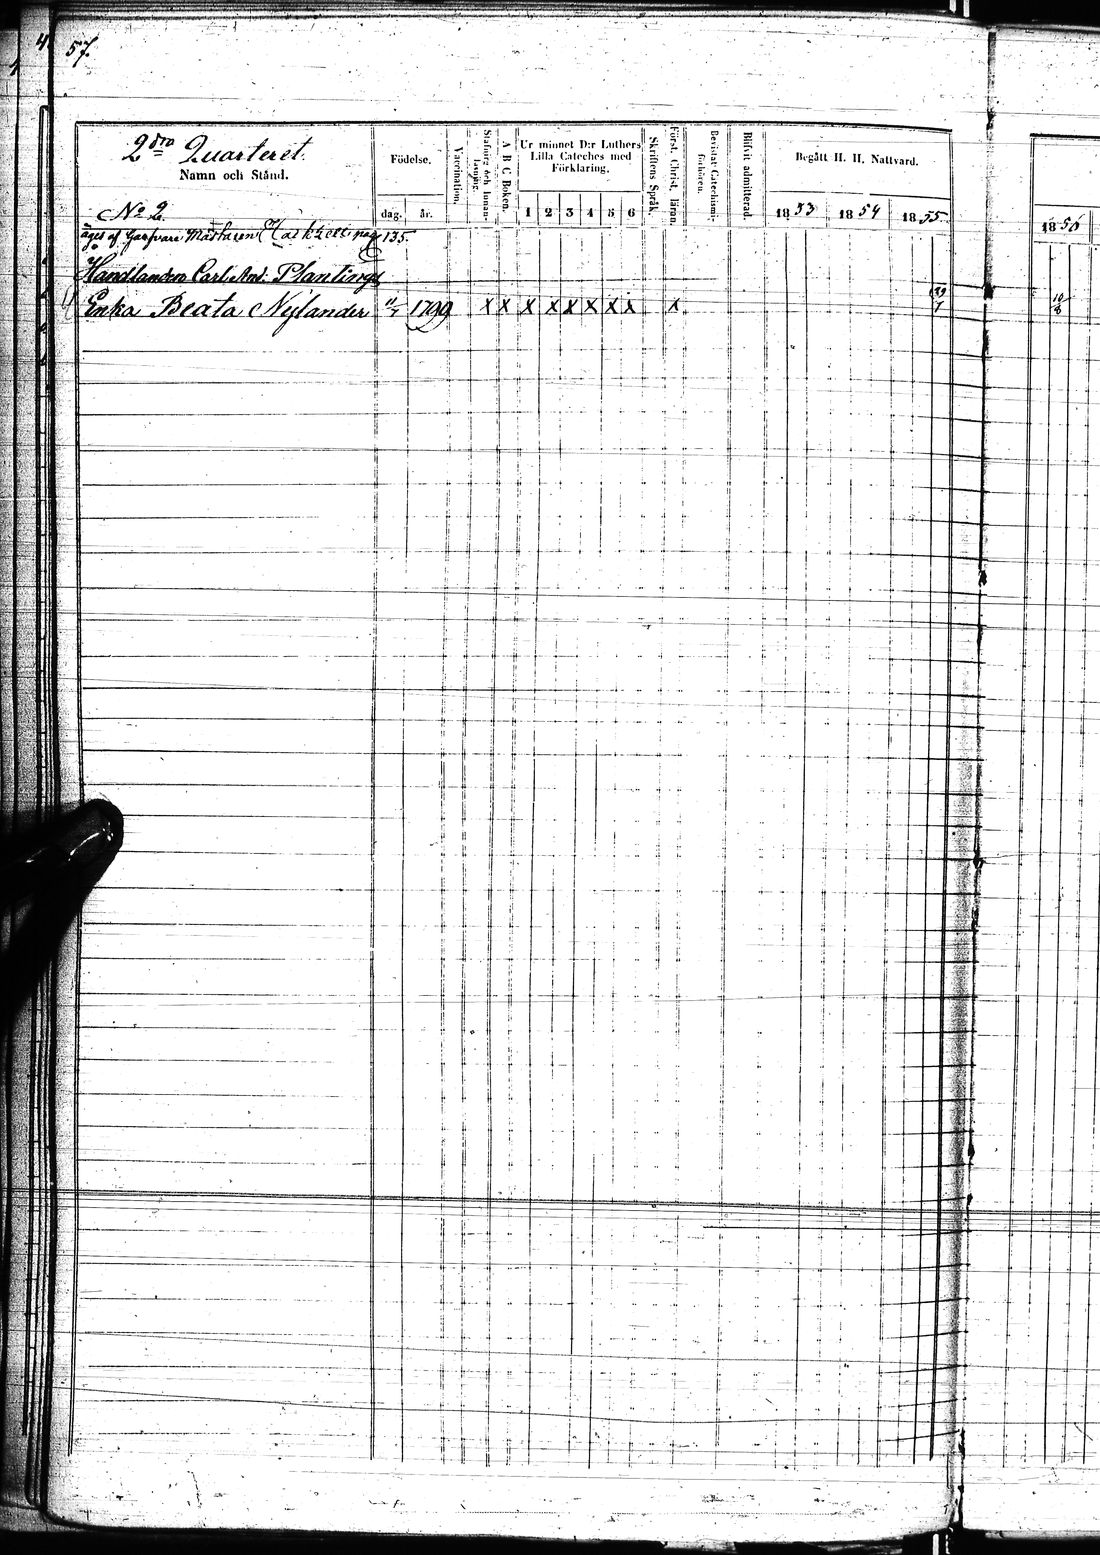 57.
2dra Quarteret.
Namn och Stånd.
Födelse.
dag. år.
Vaccination.
Stafning och Innanläsning.
A B C Boken.
Ur minnet D:r Luthers
Lilla Cateches med
Förklaring.
1 2 3 4 5 6
Skriftens Språk.
Först. Christ. läran.
Bevistat Catechismi förhören.
Blifvit admitterad.
Begått H. H. Nattvard.
1853 1854 1855
1856
No 2.
äges af Garfvare pag 135.
Handlanden Carl Ant: Plantings
Enka Beata Nylander 1799 x x x x x x x x x